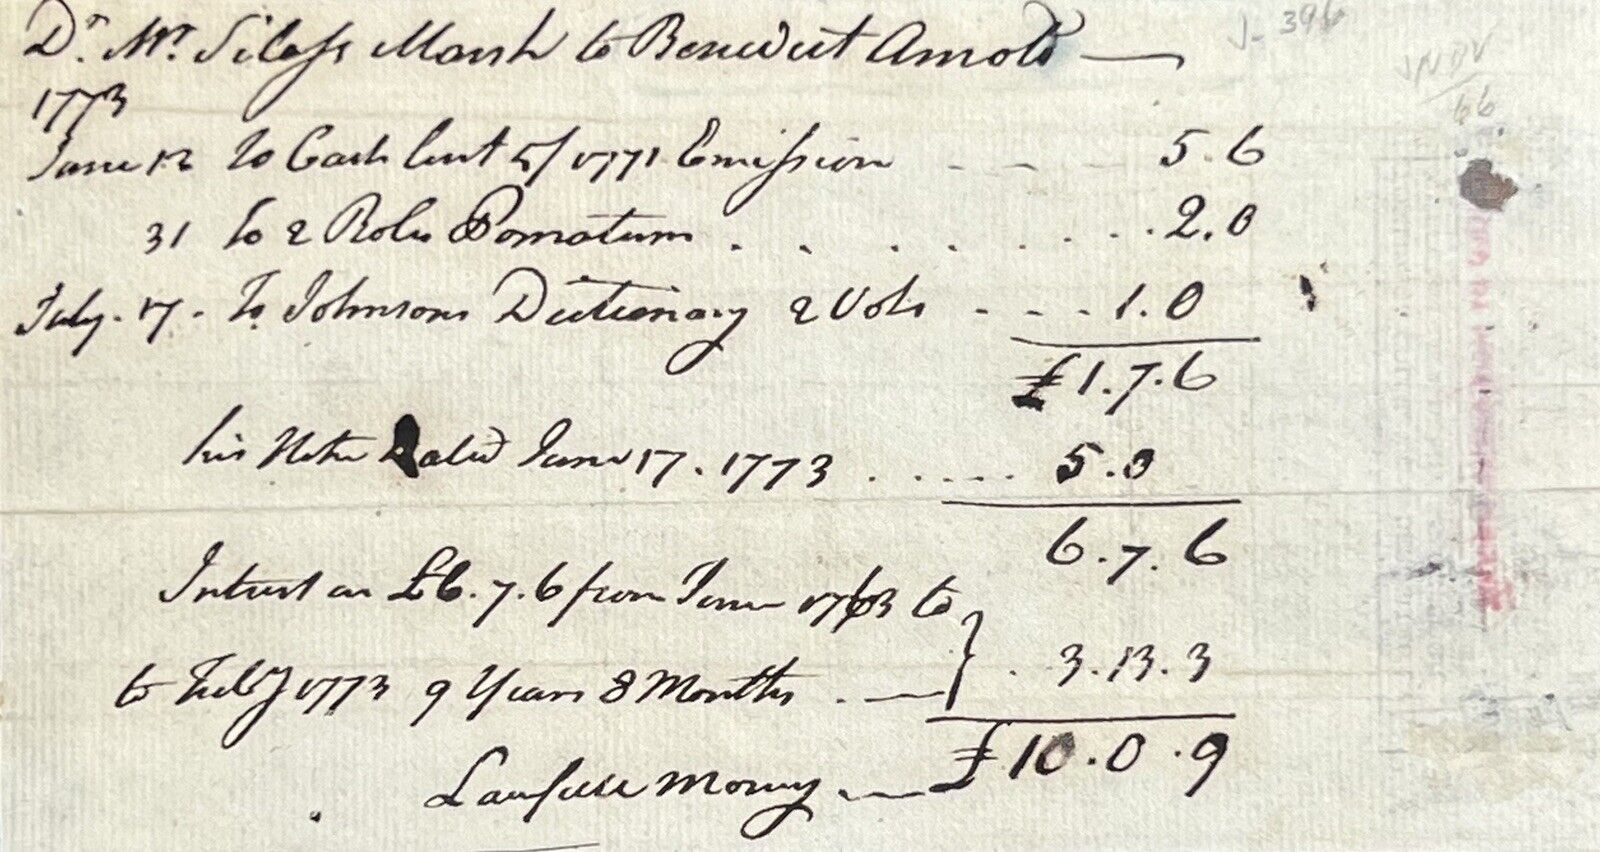 Dr. Mr. Silass Marsh to Benedict Arnold —
J-396
1773
June 12 To Cash lent 5/ 1771 Emission - - - 5.6
31 To 2 Rolls Pomatum . . . . . . . . 2.0
July. 17. To Johnsons Dictionary 2 Vols - - - . 1.0
£1.7.6
his Note Dated June 17. 1773 . . . . . . 5.0
6.7.6
Intrest on £6.7.6 from June 1763 to
to Feby 1773 9 Years 8 Months . — } . 3.13.3
Lawfull Money . — £10.0.9